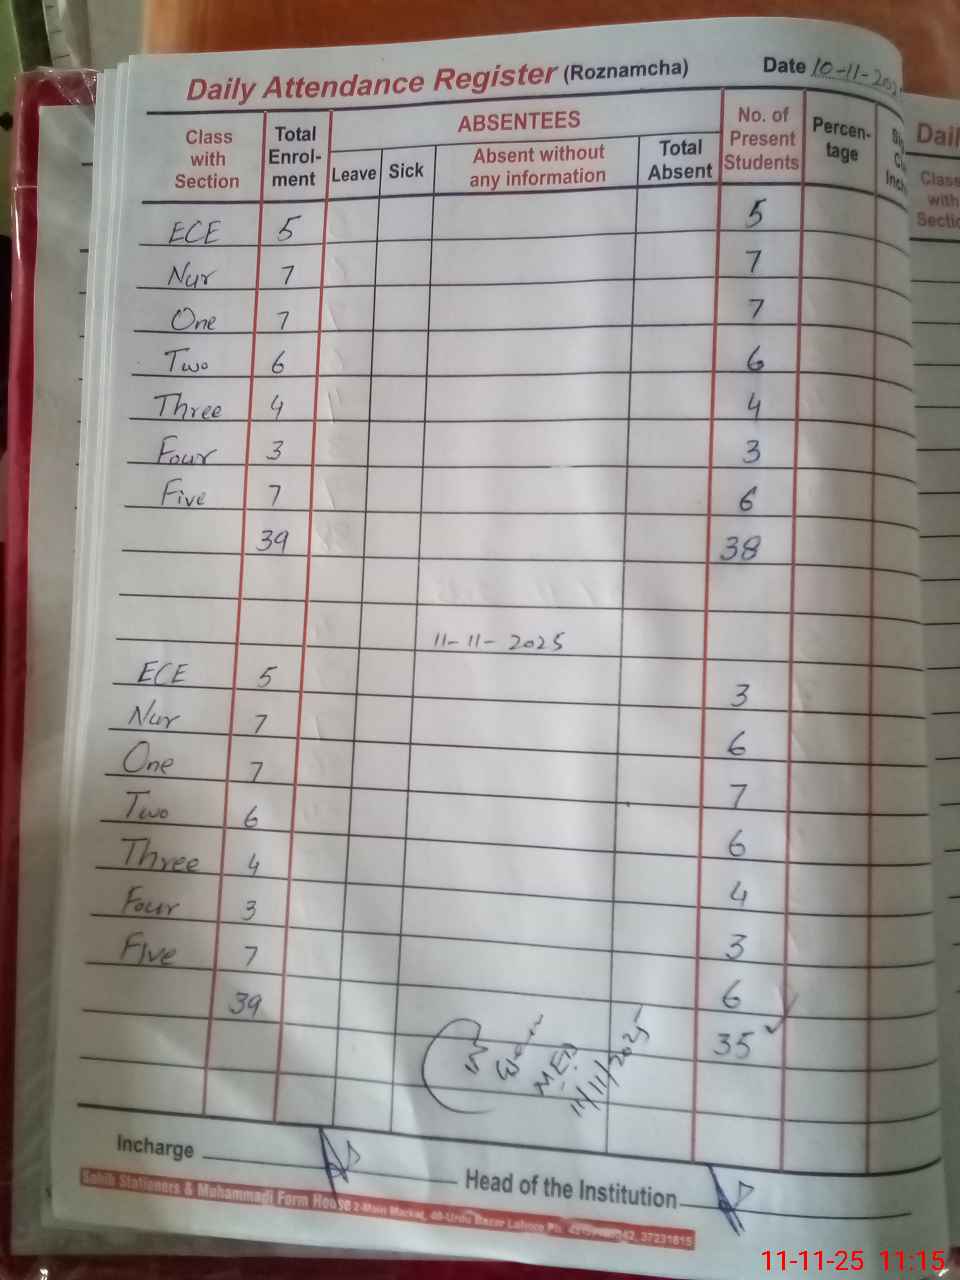 Daily Attendance Register (Roznamcha) Date 10-11-202
Class with Section Total Enrol-ment ABSENTEES No. of Present Students Percen-tage
Leave Sick Absent without any information Total Absent
ECE 5 5
Nur 7 7
One 7 7
Two 6 6
Three 4 4
Four 3 3
Five 7 6
39 38
11-11-2025
ECE 5 3
Nur 7 6
One 7 7
Two 6 6
Three 4 4
Four 3 3
FIve 7 6
39 35
MED
11/11/2025
Incharge Head of the Institution
Sahib Stationers & Muhammadi Form House 2-Main Market, 40-Urdu Bazar Lahore Ph. 37231615
Dail
Class with Sectio
11-11-25 11:15